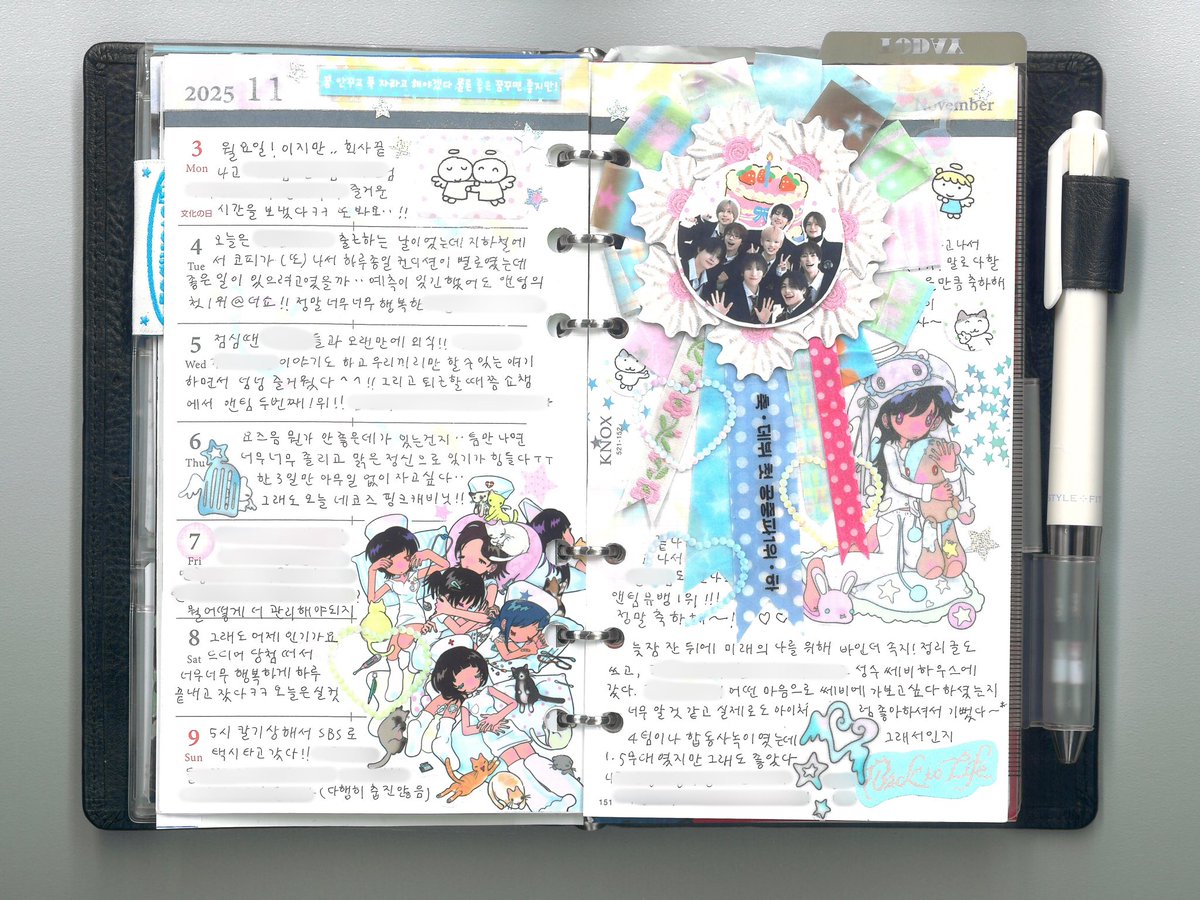 TODAY
2025 11
꿈 안꾸고 푹 자라고 해야겠다 물론 좋은 꿈꾸면 좋지만!
3
Mon
文化の日
월요일! 이지만.. 회사끝
나고
즐거운
시간을 보냈다ㅋㅋ 또 봐요..!!
4
Tue
오늘은 출근하는 날이었는데 지하철에
서 코피가 (또) 나서 하루종일 컨디션이 별로였는데
좋은 일이 있으려고였을까.. 예측이 있긴했어도 앤팀의
첫 1위 @더쇼!! 정말 너무너무 행복한
5
Wed
점심땐 들과 오랜만에 외식!!
이야기도 하고 우리끼리만 할 수 있는 얘기
하면서 넘넘 즐거웠다 ^^!! 그리고 퇴근할 때쯤 쇼챔
에서 앤팀 두번째 1위!!
6
Thu
요즈음 뭔가 안좋은데가 있는건지.. 틈만 나면
너무너무 졸리고 맑은 정신으로 있기가 힘들다ㅜㅜ
한 3일만 아무일 없이 자고싶다..
그래도 오늘 네코즈 핑크캐비닛!!
7
Fri
뭘 어떻게 더 관리해야되지
8
Sat
그래도 어제 인기가요
드디어 당첨 떠서
너무너무 행복하게 하루
끝내고 갔다ㅋㅋ 오늘은 실컷
9
Sun
5시 칼기상해서 SBS로
택시타고 갔다!!
(다행히 춥진않음)
November
고나서
말로 다할
만큼 축하해
KNOX
521-152
축·데뷔 첫 공중파 1위·하
나서
앤팀 뮤뱅 1위!!!
정말 축하해~!
늦잠 잔 뒤에 미래의 나를 위해 바인더 속지! 정리글도
쓰고, 성수 쎄비하우스에
갔다. 어떤 마음으로 쎄비에 가보고싶다 하셨는지
너무 알 것 같고 실제로도 아이처럼 좋아하셔서 기뻤다~*
4팀이나 합동사녹이였는데 그래서인지
1.5무대였지만 그래도 좋았다
Back to Life
151
STYLE-FIT